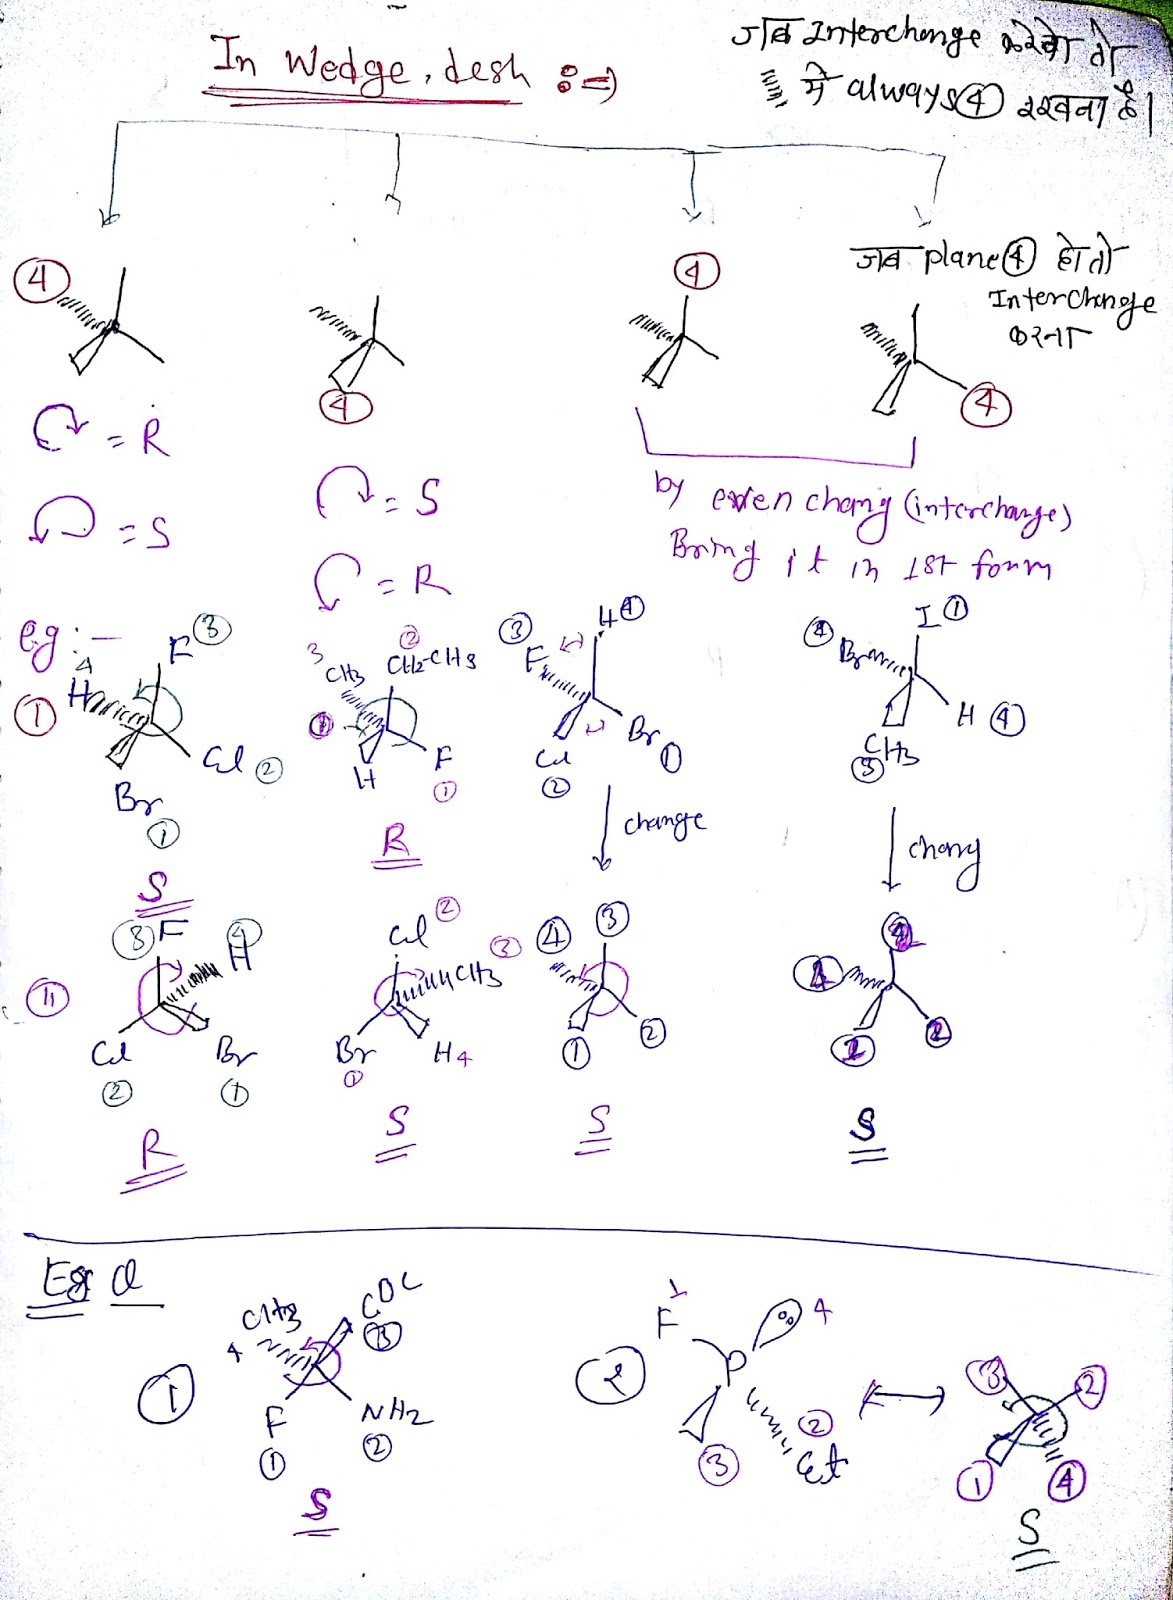 In Wedge, desh :⇒
जब Interchange करेंगे तो
में always ④ रखना है।
④
④
④
जब plane ④ हो तो
Interchange
करना
④
= R
= S
= S
= R
by even chang (interchange)
Bring it in 1st form
e.g :-
①
4
H
F ③
Cl ②
Br
①
S
3
CH3
②
CH2-CH3
H
F
①
R
③
F
H ④
Cl
②
Br
①
change
④
Br
I ①
H ④
CH3
③
chang
11
③ F
④
H
Cl
②
Br
①
R
Cl ②
CH3 ③
Br
①
H 4
S
④
③
①
②
S
S
Eg Q
①
CH3
4
③
F
①
NH2
②
S
②
F 1
4
P
③
②
Et
③
②
①
④
S